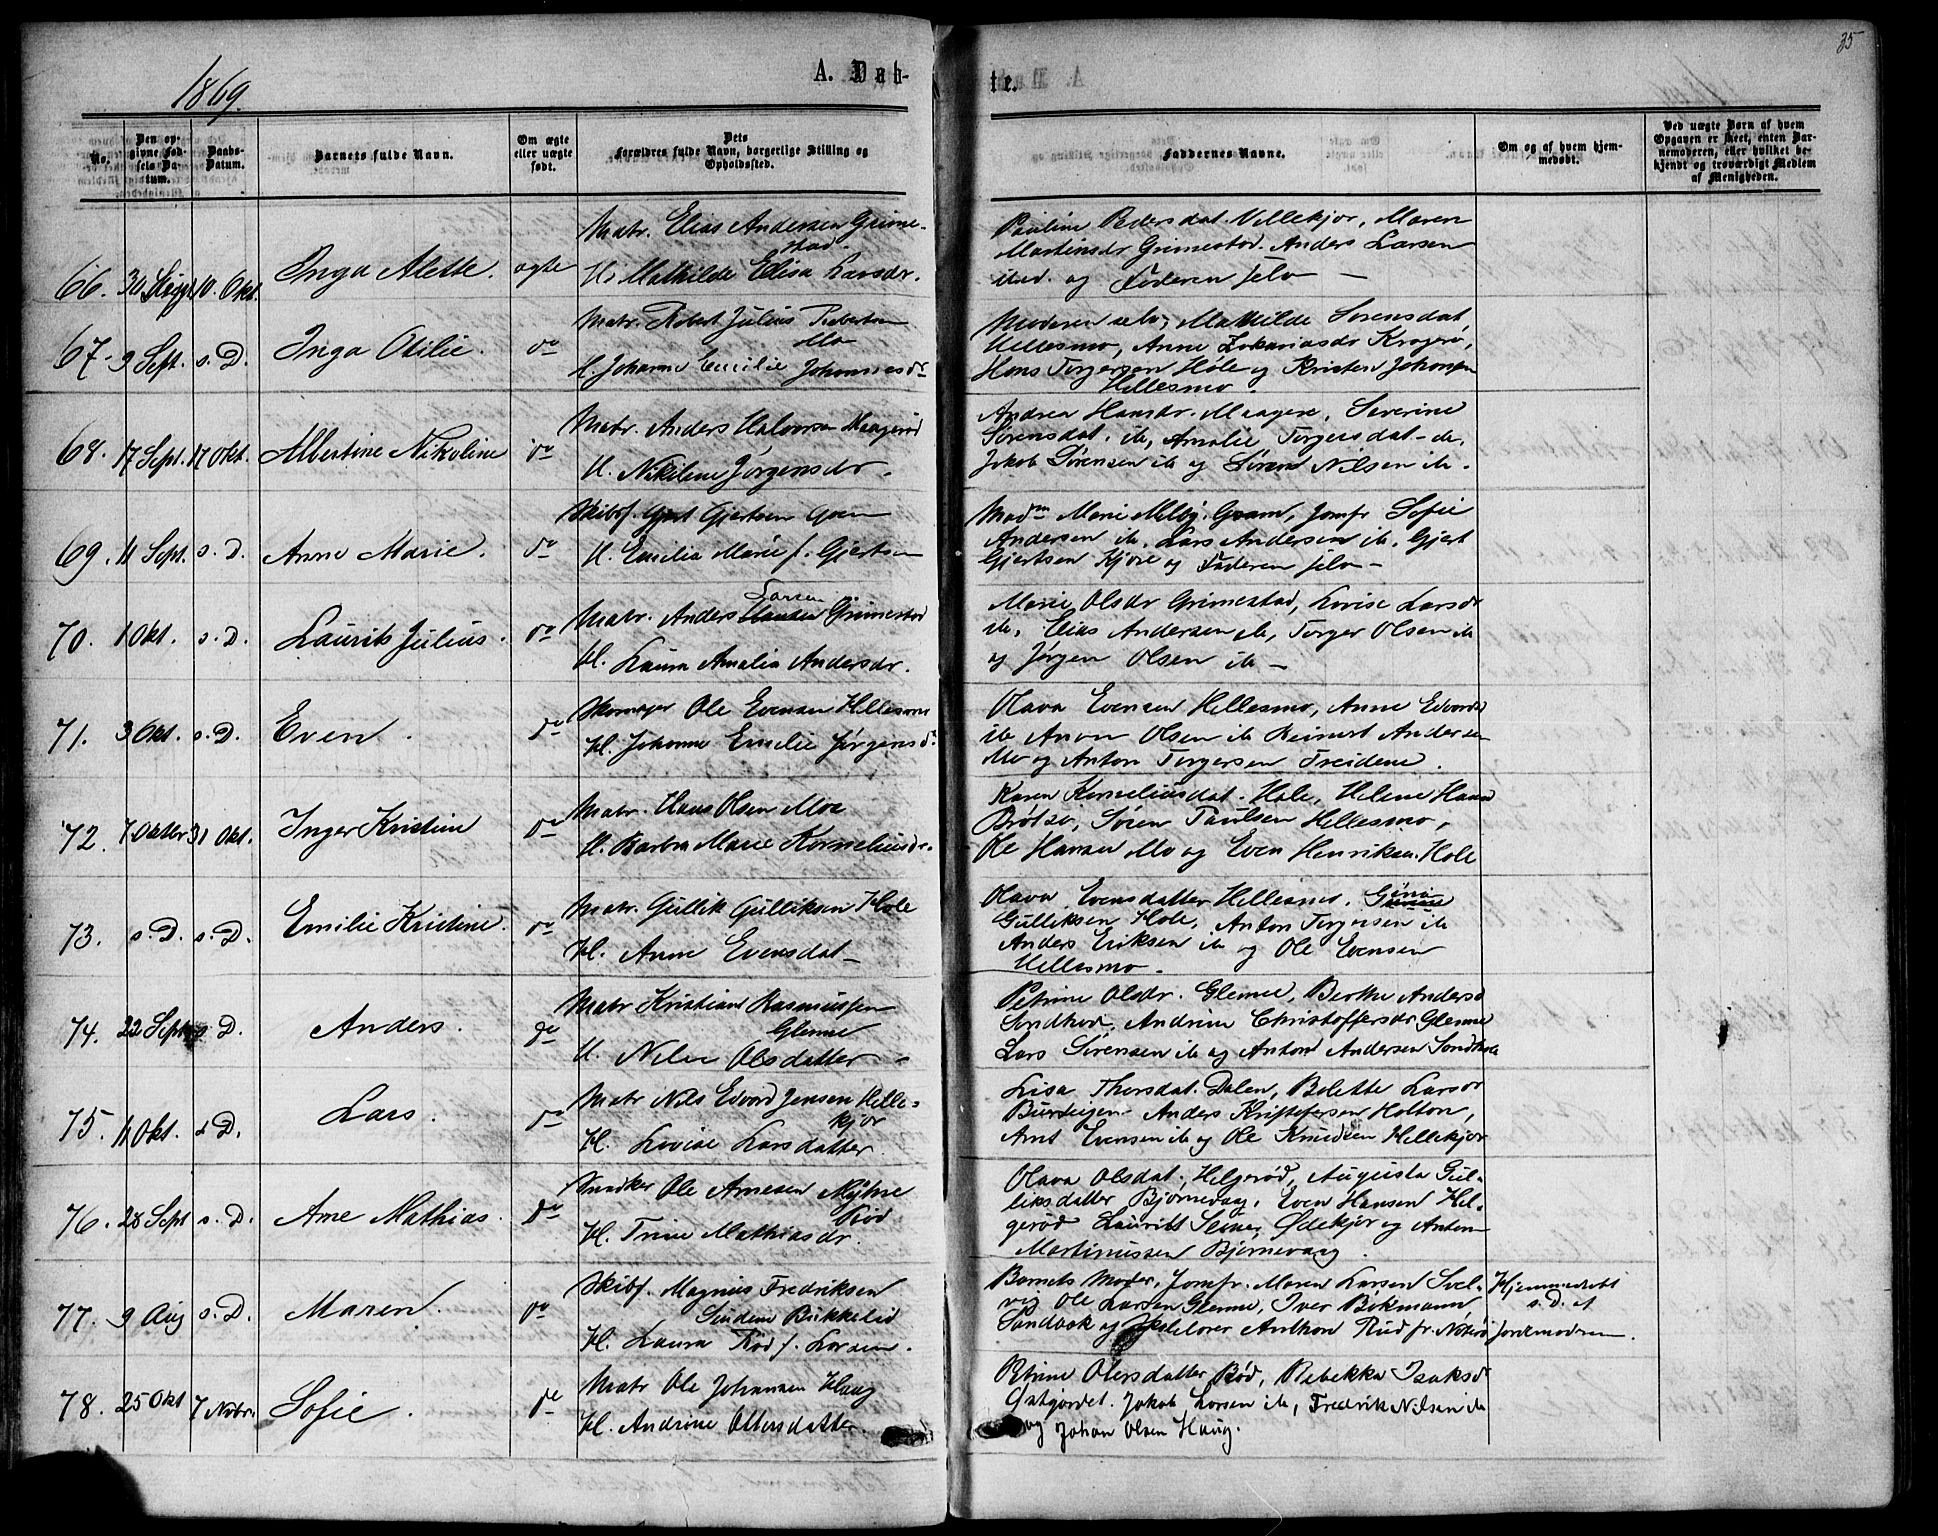 1869.
A. Døb-
te.
35
No.
Den op-
givne Fød-
sels Da-
tum.
Daabs-
Datum.
Barnets fulde Navn.
Om ægte
eller uægte
født.
Dets
Forældres fulde Navn, borgerlige Stilling og
Opholdssted.
Faddernes Navne.
Om og af hvem hjem-
medøbt.
Ved uægte Børn af hvem
Opgaven er skeet, enten Bar-
nemoderen, eller hvilket be-
kjendt og troværdigt Medlem
af Menigheden.
66. 30 10. Okt. Inga Alette. ægte
Matr. Elias Andersen Grime-
stad.
H. Mathilde Elisa Larsdr.
Pauline Pedersdat. Maren
Martinsdr Grimestad. Anders Larsen
ibid. og Faderen selv —
67. 9 Sept. s. D. Inga Otilie. do
Matr. Robert Julius Robertsen
Mo
H. Johanne Emilie Johannesdr
Moderen selv, Mathilde Sorensdat
Hellesmo, Anne Zakariasdr Kragerø,
Hans Torgersen Hole og Kristen Johansen
Hellesmo.
68. 17 Sept. 17 Okt. Albertine Nikoline do
Matr. Anders Halvorsen Haagerød
H. Nikiline Jørgensdr.
Andrea Hansdr. Severine
Sørensdat. ib, Amalie Torgersdat ib.
Jakob Sørensen ib og Søren Nilsen ib.
69. 11 Sept. s. D. Anne Marie. do
Skibsf. Gjert Gjertsen
H. Emilia Marie f. Gjertsen
Madm Marie Melby, Jomfr Sofie
Andersen ib. Lars Andersen ib, Gjert
Gjertsen Kjøre og Faderen selv —
70. 1 Okt. s. D. Laurits Julius. do
Larsen
Matr. Anders Hansen Grimestad
H. Laura Amalia Andersdr.
Marie Olsdr Grimestad, Lovise Larsdr
ib. Elias Andersen ib, Torger Olsen ib
og Jørgen Olsen ib —
71. 3 Okt. s. D. Even. do
Skomager Ole Evensen Hellesmo
H. Johanne Emelie Jørgensdr
Olava Evensen Hellesmo, Anne Edvardsd
ib Anon Olsen ib Reinert Andersen
Mo og Anton Torgersen Treidene.
72. 7 Oktbr 31 Okt. Inger Kristine do
Matr. Hans Olsen Moe
H. Barbra Marie Korneliusdr.
Karen Korneliusdat. Hole, Helene Hansd
Brøtsø, Søren Paulsen Hellesmo,
Ole Hansen Mo og Even Henriksen Hole
73. s. D. s. D. Emilie Kristine. do
Matr. Gullik Gulliksen Hole
H. Anne Evensdat —
Olava Evensdatter Hellesmo,
Gulliksen Hole, Anton Torgersen ib
Anders Eriksen ib og Ole Evensen
Hellesmo.
74. 22 Sept s. D. Anders. do
Matr Kristian Rasmussen
Glenne
H. Nilia Olsdatter —
Petrine Olsdr. Glenne, Berthe Andersd
Sondhod. Andrine Christoffersdr Glenne
Lars Sørensen ib og Anton Andersen
75. 11 Okt. s D. Lars. do
Matr Nils Edvard Jensen Helle-
kjær
H. Lovise Larsdatter.
Lisa Thorsdat. Dalen, Bolette Larsdr
Anders Kristofersen Holton,
Arnt Evensen ib og Ole Knudsen Hellekjær
76. 28 Sept s. D. Arne Mathias. do
Snedker Ole Arnesen Myhre
H. Trine Mathiasdr.
Olava Olsdat. Helgerød, Augusta Gul-
liksdatter Bjørnevaag, Even Hansen Hel-
gerød Lauritz Ødekjær og Anton
Martinussen Bjørnevaag.
77. 9 Aug s. D. Maren. do
Skibsf. Magnus Fredriksen
H. Laura Rød f. Larsen.
Barnets Moder, Jomfr. Maren Larsen Svel-
vig Ole Larsen Glenne, Iver Bøkmann
Sandbæk og Anthon Rud fr. Nøterø
Hjemmedøbt
s. D. af
Jordemodren.
78. 25 Okt 7 Novbr. Sofie. do
Matr Ole Johansen Haug
H. Andrine Ollersdatter.
Petrine Olersdatter Bød, Rebekka Isaksdr
Østgjordet. Jakob Larsen ib, Fredrik Nilsen ib
og Johan Olsen Haug.